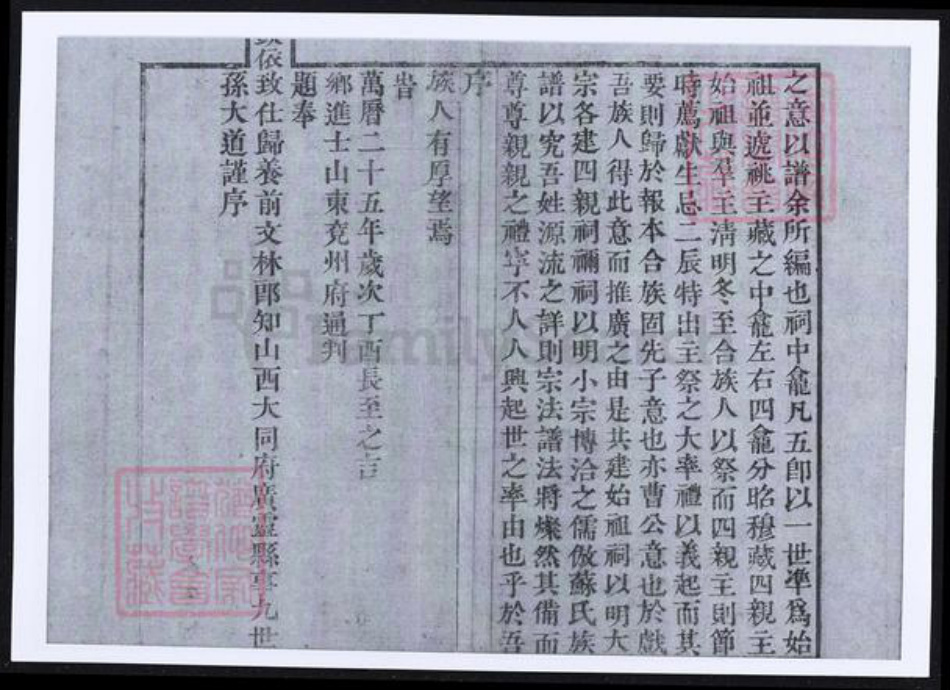 之意以譜余所編也祠中龕凡五卽以一世準爲始
祖並遞祧主藏之中龕左右四龕分昭穆藏四親主
始祖與羣主淸明冬至合族人以祭而四親主則節
時薦獻生忌二辰特出主祭之大率禮以義起而其
要則歸於報本合族固先子意也亦曹公意也於戲
吾族人得此意而推廣之由是共建始祖祠以明大
宗各建四親祠禰祠以明小宗博洽之儒倣蘇氏族
譜以究吾姓源流之詳則宗法譜法將燦然其備而
尊尊親親之禮寧不人人興起世之率由也乎於吾
序
族人有厚望焉
旹
萬曆二十五年歲次丁酉長至之吉
鄉進士山東兗州府通判
題奉
依致仕歸養前文林郎知山西大同府廣靈縣事九世
孫大道謹序